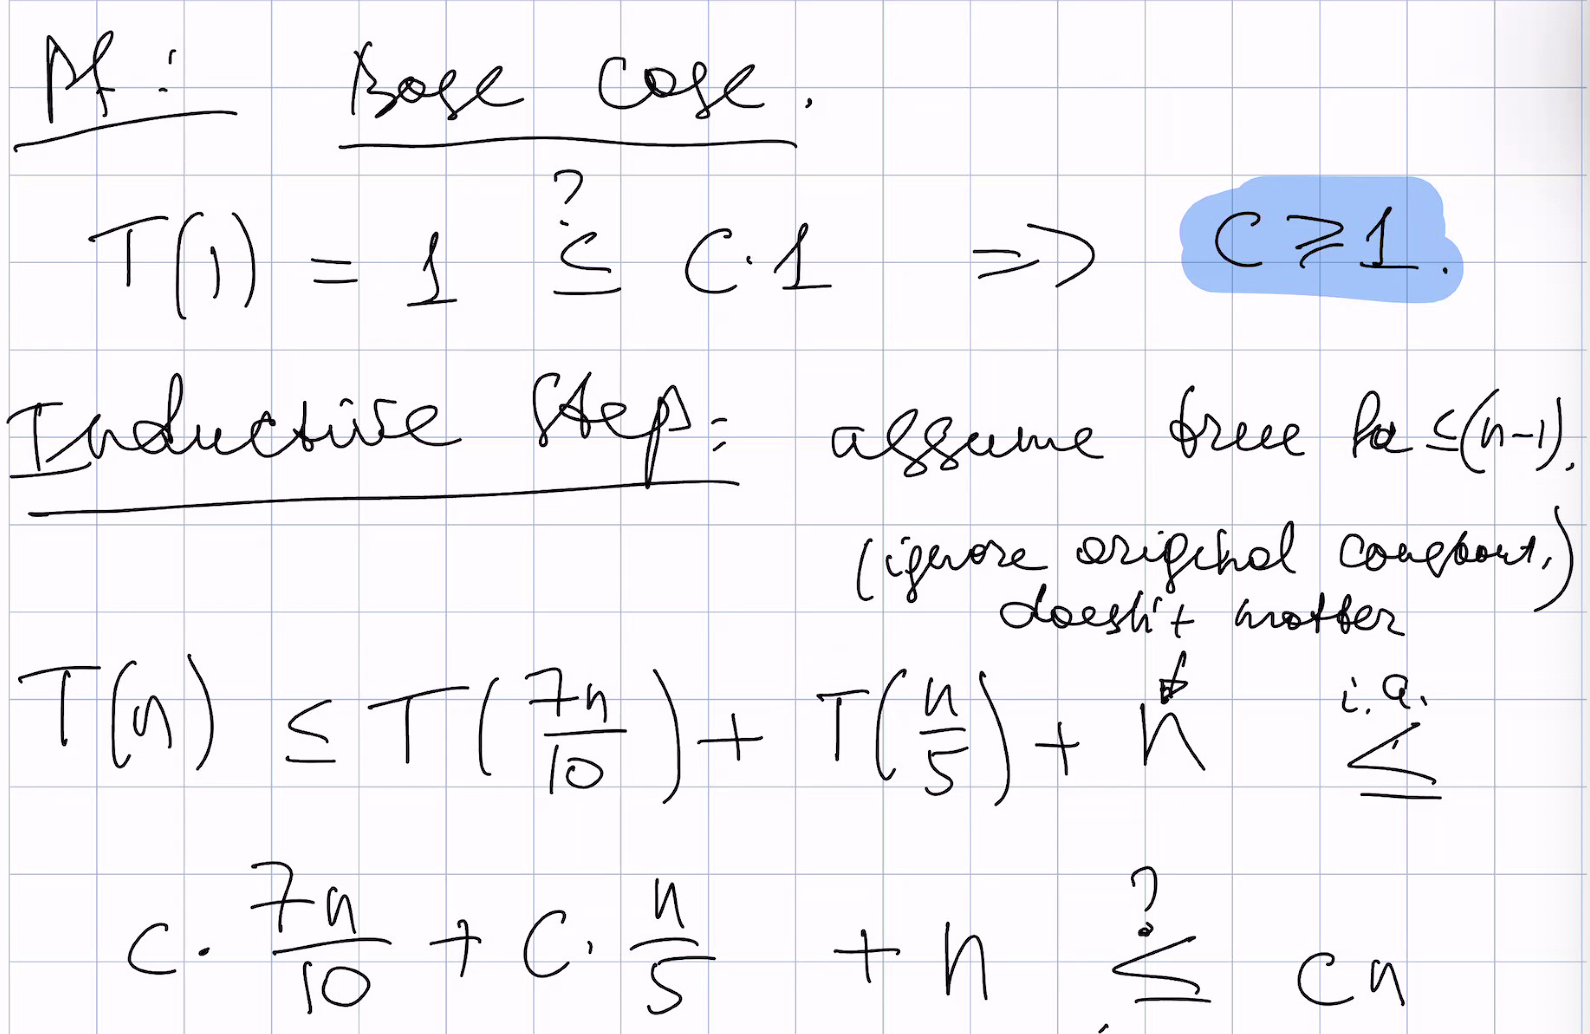 Pf: Base Case.
T(1) = 1 ≤? C·1 => C ≥ 1.
Inductive Step: assume true for ≤(n-1).
(ignore original constant,)
doesn't matter
T(n) ≤ T(7n/10) + T(n/5) + n ≤ i.a.
c · 7n/10 + C · n/5 + n ≤? cn